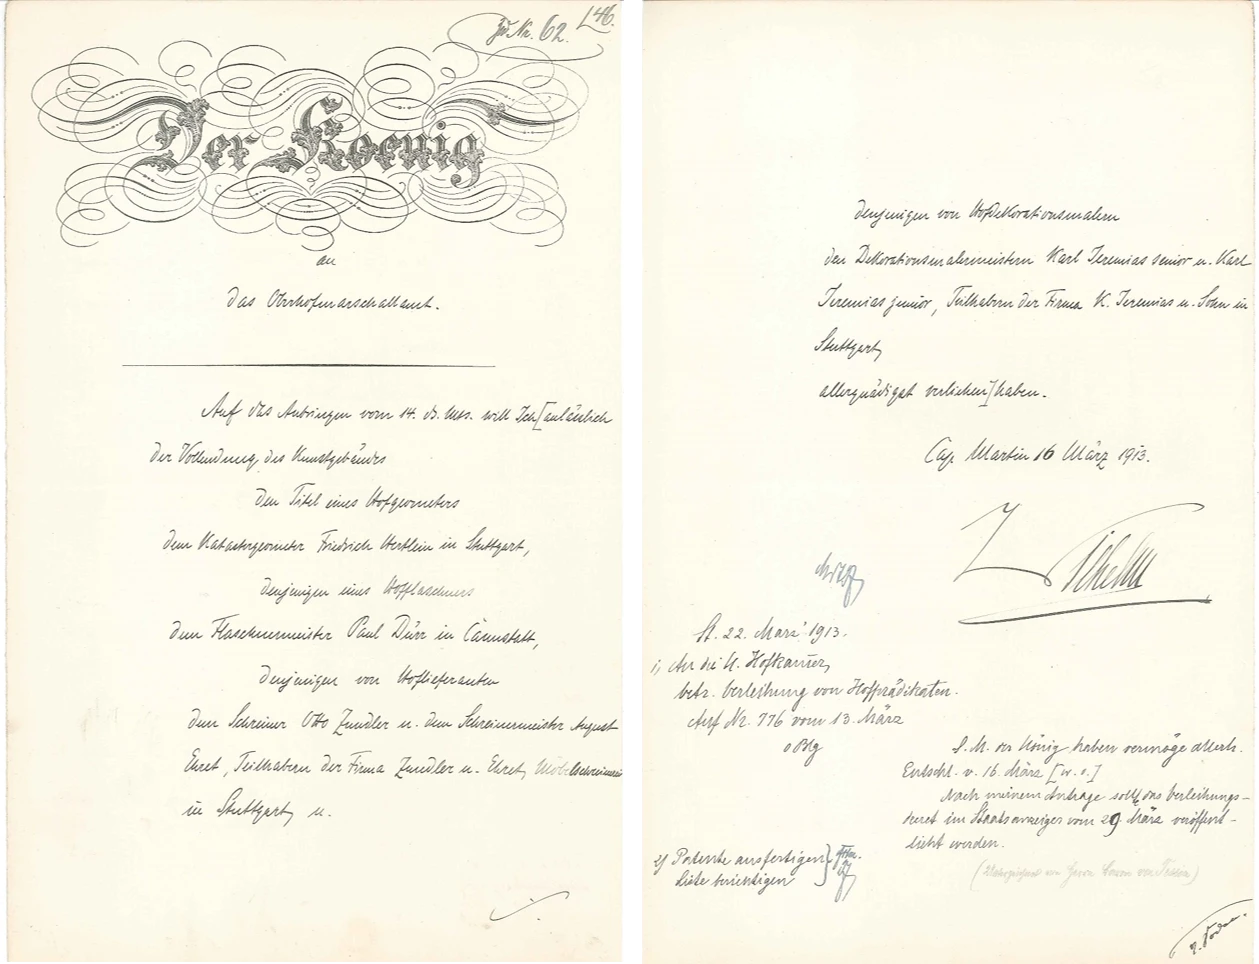 Zu Nr. 62.
L 46.
Der Koenig
an
das Oberhofmarschallamt.
Auf das Anbringen vom 14. ds. Mts. will Ich [anläßlich
der Vollendung des Kunstgebäudes
den Titel eines Hofgeometers
dem Katastergeometer Friedrich Hertlein in Stuttgart,
denjenigen eines Hofflaschners
dem Flaschnermeister Paul Dürr in Cannstatt,
denjenigen von Hoflieferanten
dem Schreiner Otto Zundler u. dem Schreinermeister August
Ehret, Teilhabern der Firma Zundler u. Ehret, Möbelschreinerei
in Stuttgart, u.
denjenigen von Hofdekorationsmalern
den Dekorationsmalermeistern Karl Jeremias senior u. Karl
Jeremias junior, Teilhabern der Firma K. Jeremias u. Sohn in
Stuttgart,
allergnädigst verliehen] haben.
Cap Martin 16 März 1913.
Wilhelm
St. 22. März 1913.
1, An die K. Hofkammer,
betr. Verleihung von Hofprädikaten.
Auf Nr. 776 vom 13. März
0 Blg
S. M. der König haben vermöge Allerh.
Entschl. v. 16. März [w. o.]
Nach meinem Antrage sollte das Verleihungs-
dekret im Staatsanzeiger vom 29. März veröffent-
licht werden.
2) Patente ausfertigen
Liste berichtigen